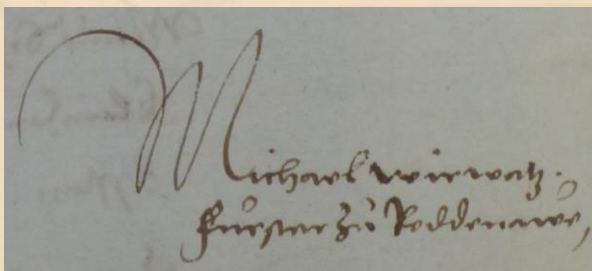 Michael wirwatz.
Fürster zů Roddenawe,